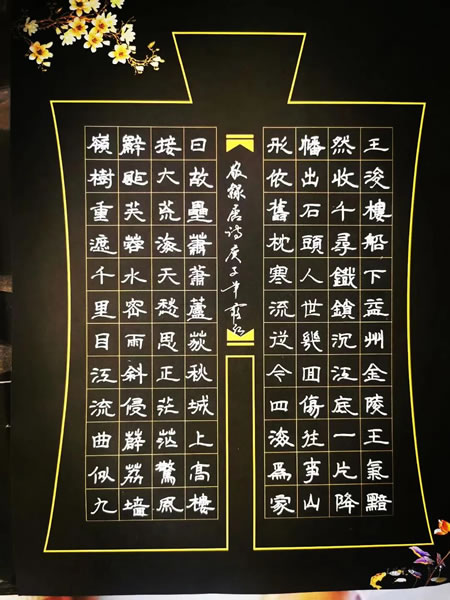 王浚樓船下益州金陵王氣黯
然收千尋鐵鎖沉江底一片降
幡出石頭人世幾回傷往事山
形依舊枕寒流從今四海爲家
敬錄唐詩庚子年
日故壘蕭蕭蘆荻秋城上高樓
接大荒海天愁思正茫茫驚風
亂颭芙蓉水密雨斜侵薜荔墻
嶺樹重遮千里目江流曲似九